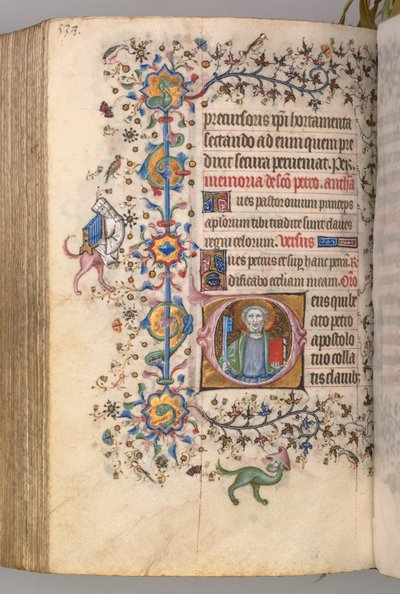 precursoris xpi hortamenta
sectando ad eum quem pre
dixit secura perveniat. Per.
memoria de sco petro. antha
Tu es pastor ovium princeps
aplorum tibi tradite sunt claves
regni celorum. Versus
Tu es petrus et sup hanc petra. R
Edificabo eccliam meam. Oro
Deus qui be
ato petro
apostolo
tuo colla
tis clavib